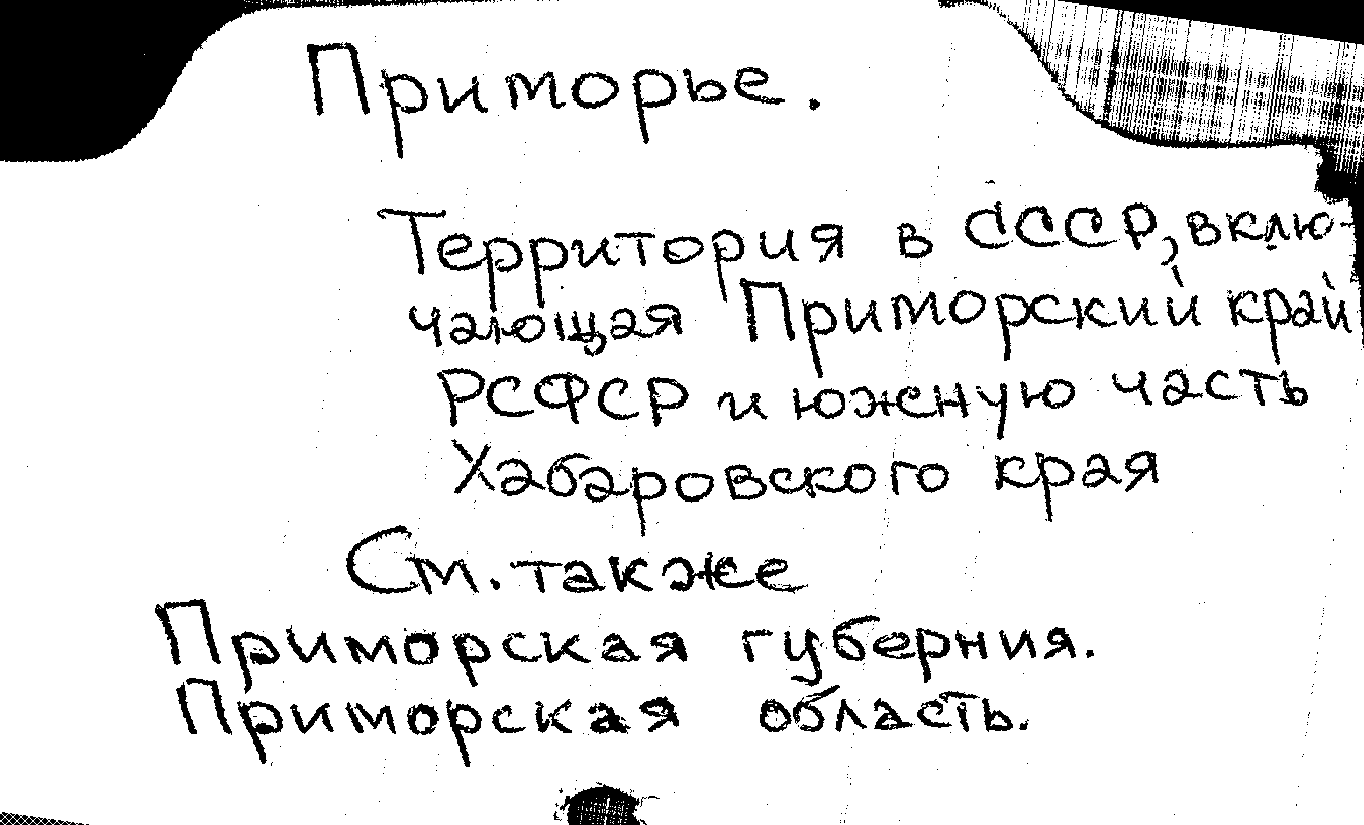 Приморье.
Территория в СССР, вклю-
чающая Приморский край
РСФСР и южную часть
Хабаровского края
См. также
Приморская губерния.
Приморская область.